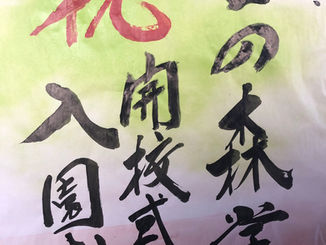 の森学
祝
開校式
入園